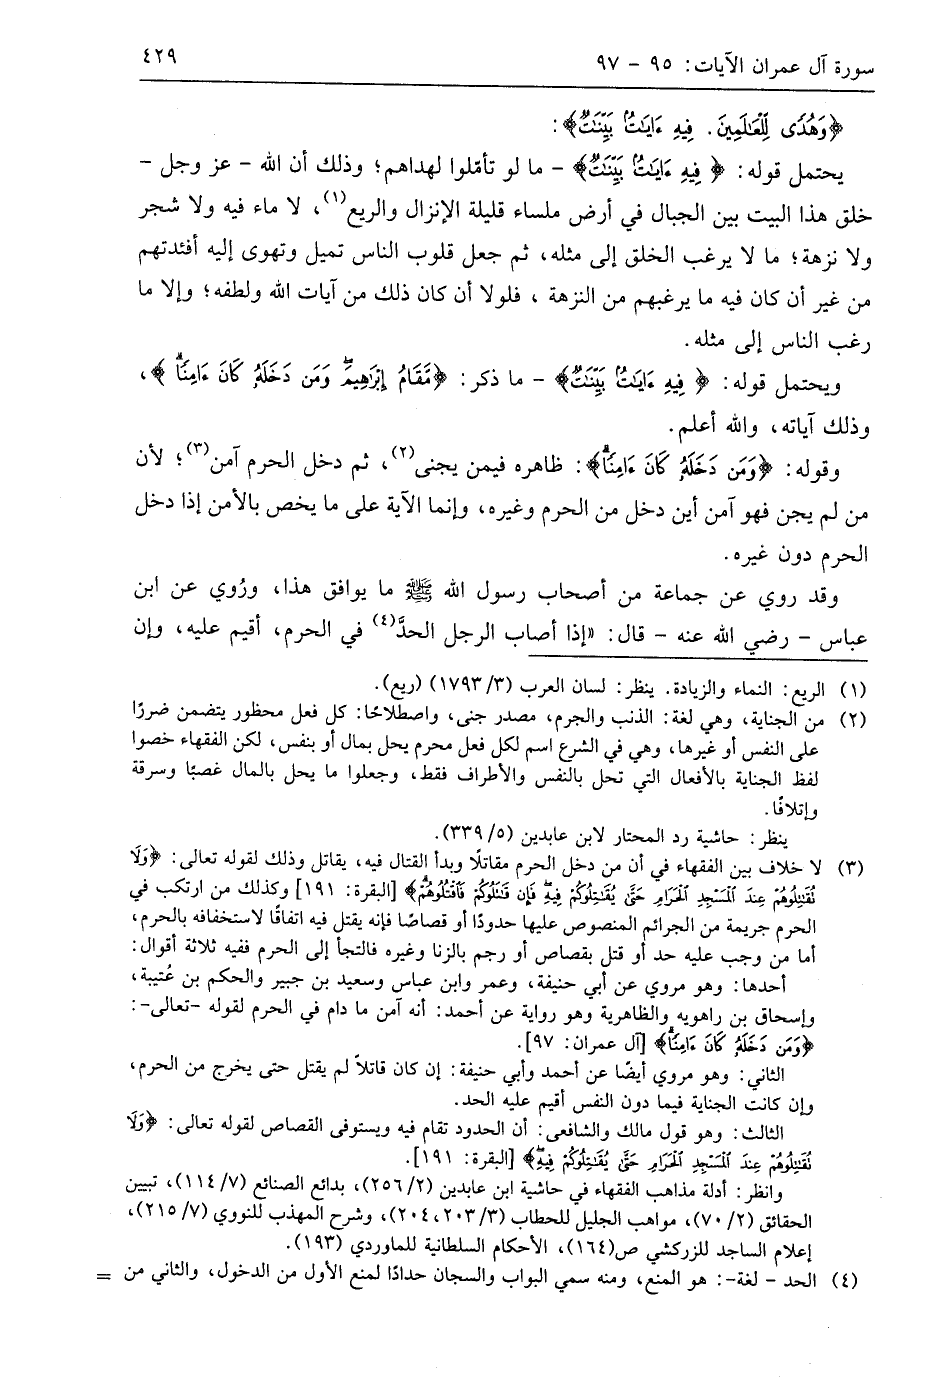 سورة آل عمران الآيات: ٩٥ - ٩٧
٤٢٩
﴿وَهُدًى لِّلْعَالَمِينَ. فِيهِ ءَايَٰتٌۢ بَيِّنَٰتٌ﴾:
يحتمل قوله: ﴿فِيهِ ءَايَٰتٌۢ بَيِّنَٰتٌ﴾ - ما لو تأمّلوا لهداهم؛ وذلك أن الله - عز وجل -
خلق هذا البيت بين الجبال في أرض ملساء قليلة الإنزال والريع(١)، لا ماء فيه ولا شجر
ولا نزهة؛ ما لا يرغب الخلق إلى مثله، ثم جعل قلوب الناس تميل وتهوى إليه أفئدتهم
من غير أن كان فيه ما يرغبهم من النزهة ، فلولا أن كان ذلك من آيات الله ولطفه؛ وإلا ما
رغب الناس إلى مثله.
ويحتمل قوله: ﴿فِيهِ ءَايَٰتٌۢ بَيِّنَٰتٌ﴾ - ما ذكر: ﴿مَّقَامُ إِبْرَٰهِيمَۖ وَمَن دَخَلَهُۥ كَانَ ءَامِنًاۗ﴾،
وذلك آياته، والله أعلم.
وقوله: ﴿وَمَن دَخَلَهُۥ كَانَ ءَامِنًاۗ﴾: ظاهره فيمن يجنى(٢)، ثم دخل الحرم آمن(٣)؛ لأن
من لم يجن فهو آمن أين دخل من الحرم وغيره، وإنما الآية على ما يخص بالأمن إذا دخل
الحرم دون غيره.
وقد روي عن جماعة من أصحاب رسول الله ﷺ ما يوافق هذا، ورُوي عن ابن
عباس - رضي الله عنه - قال: «إذا أصاب الرجل الحدَّ(٤) في الحرم، أقيم عليه، وإن
(١) الريع: النماء والزيادة. ينظر: لسان العرب (١٧٩٣/٣) (ريع).
(٢) من الجناية، وهي لغة: الذنب والجرم، مصدر جنى، واصطلاحًا: كل فعل محظور يتضمن ضررًا
على النفس أو غيرها، وهي في الشرع اسم لكل فعل محرم يحل بمال أو بنفس، لكن الفقهاء خصوا
لفظ الجناية بالأفعال التي تحل بالنفس والأطراف فقط، وجعلوا ما يحل بالمال غصبًا وسرقة
وإتلافًا.
ينظر: حاشية رد المحتار لابن عابدين (٣٣٩/٥).
(٣) لا خلاف بين الفقهاء في أن من دخل الحرم مقاتلًا وبدأ القتال فيه، يقاتل وذلك لقوله تعالى: ﴿وَلَا
تُقَٰتِلُوهُمْ عِندَ ٱلْمَسْجِدِ ٱلْحَرَامِ حَتَّىٰ يُقَٰتِلُوكُمْ فِيهِۖ فَإِن قَٰتَلُوكُمْ فَٱقْتُلُوهُمْۗ﴾ [البقرة: ١٩١] وكذلك من ارتكب في
الحرم جريمة من الجرائم المنصوص عليها حدودًا أو قصاصًا فإنه يقتل فيه اتفاقًا لاستخفافه بالحرم،
أما من وجب عليه حد أو قتل بقصاص أو رجم بالزنا وغيره فالتجأ إلى الحرم ففيه ثلاثة أقوال:
أحدها: وهو مروي عن أبي حنيفة، وعمر وابن عباس وسعيد بن جبير والحكم بن عُتيبة،
وإسحاق بن راهويه والظاهرية وهو رواية عن أحمد: أنه آمن ما دام في الحرم لقوله -تعالى-:
﴿وَمَن دَخَلَهُۥ كَانَ ءَامِنًاۗ﴾ [آل عمران: ٩٧].
الثاني: وهو مروي أيضًا عن أحمد وأبي حنيفة: إن كان قاتلاً لم يقتل حتى يخرج من الحرم،
وإن كانت الجناية فيما دون النفس أقيم عليه الحد.
الثالث: وهو قول مالك والشافعي: أن الحدود تقام فيه ويستوفى القصاص لقوله تعالى: ﴿وَلَا
تُقَٰتِلُوهُمْ عِندَ ٱلْمَسْجِدِ ٱلْحَرَامِ حَتَّىٰ يُقَٰتِلُوكُمْ فِيهِۖ﴾ [البقرة: ١٩١].
وانظر: أدلة مذاهب الفقهاء في حاشية ابن عابدين (٢٥٦/٢)، بدائع الصنائع (١١٤/٧)، تبيين
الحقائق (٧٠/٢)، مواهب الجليل للحطاب (٢٠٣/٣، ٢٠٤)، وشرح المهذب للنووي (٢١٥/٧)،
إعلام الساجد للزركشي ص(١٦٤)، الأحكام السلطانية للماوردي (١٩٣).
(٤) الحد - لغة-: هو المنع، ومنه سمي البواب والسجان حدادًا لمنع الأول من الدخول، والثاني من =